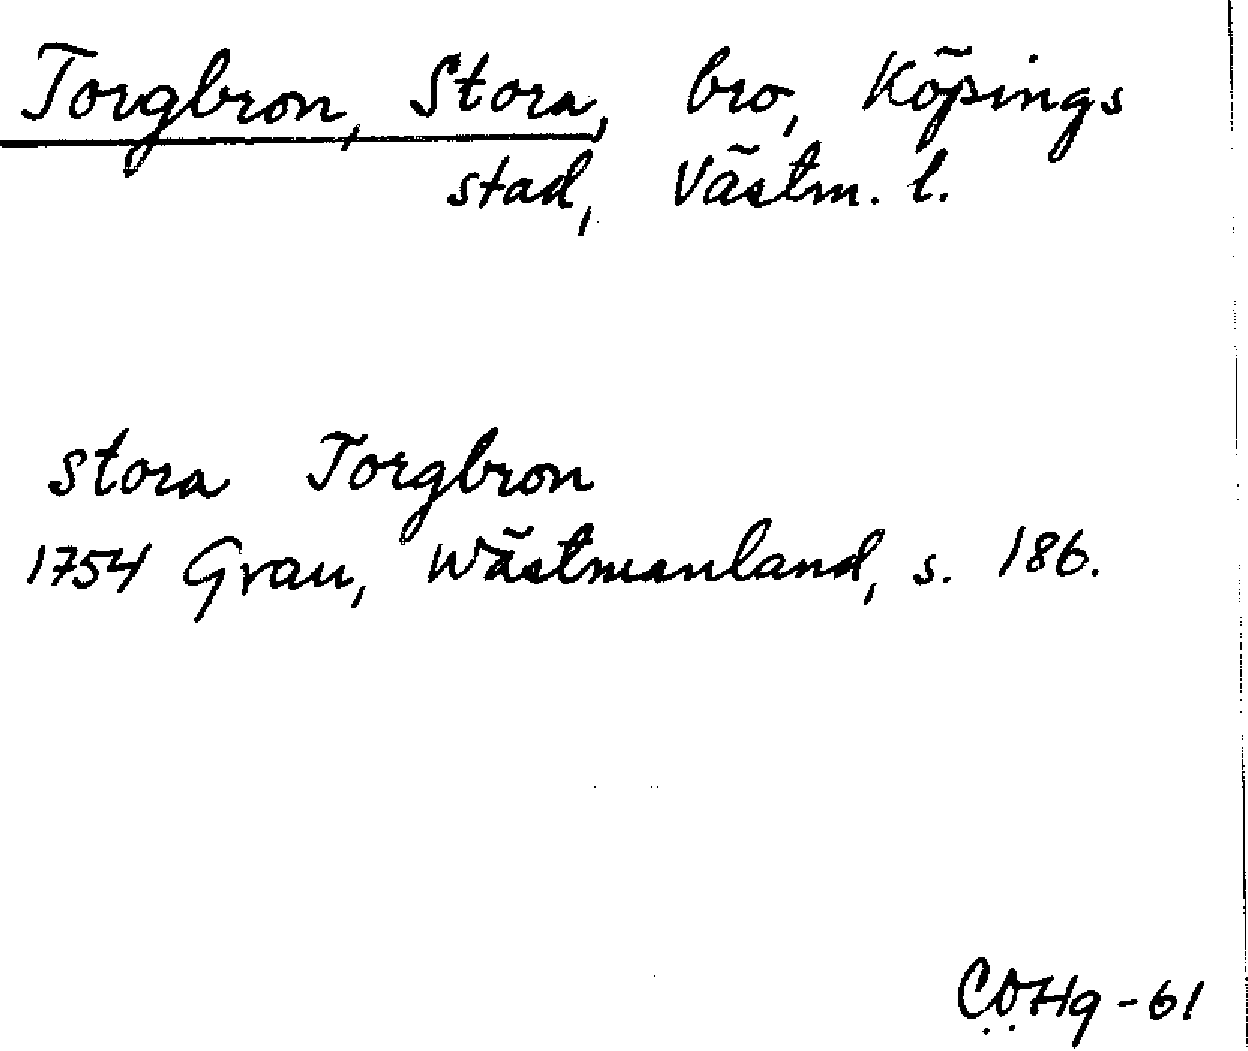 Torgbron, Stora, bro, Köpings
stad, Västm. l.
stora Torgbron
1754 Grau, Wästmanland, s. 186.
CÖHg-61